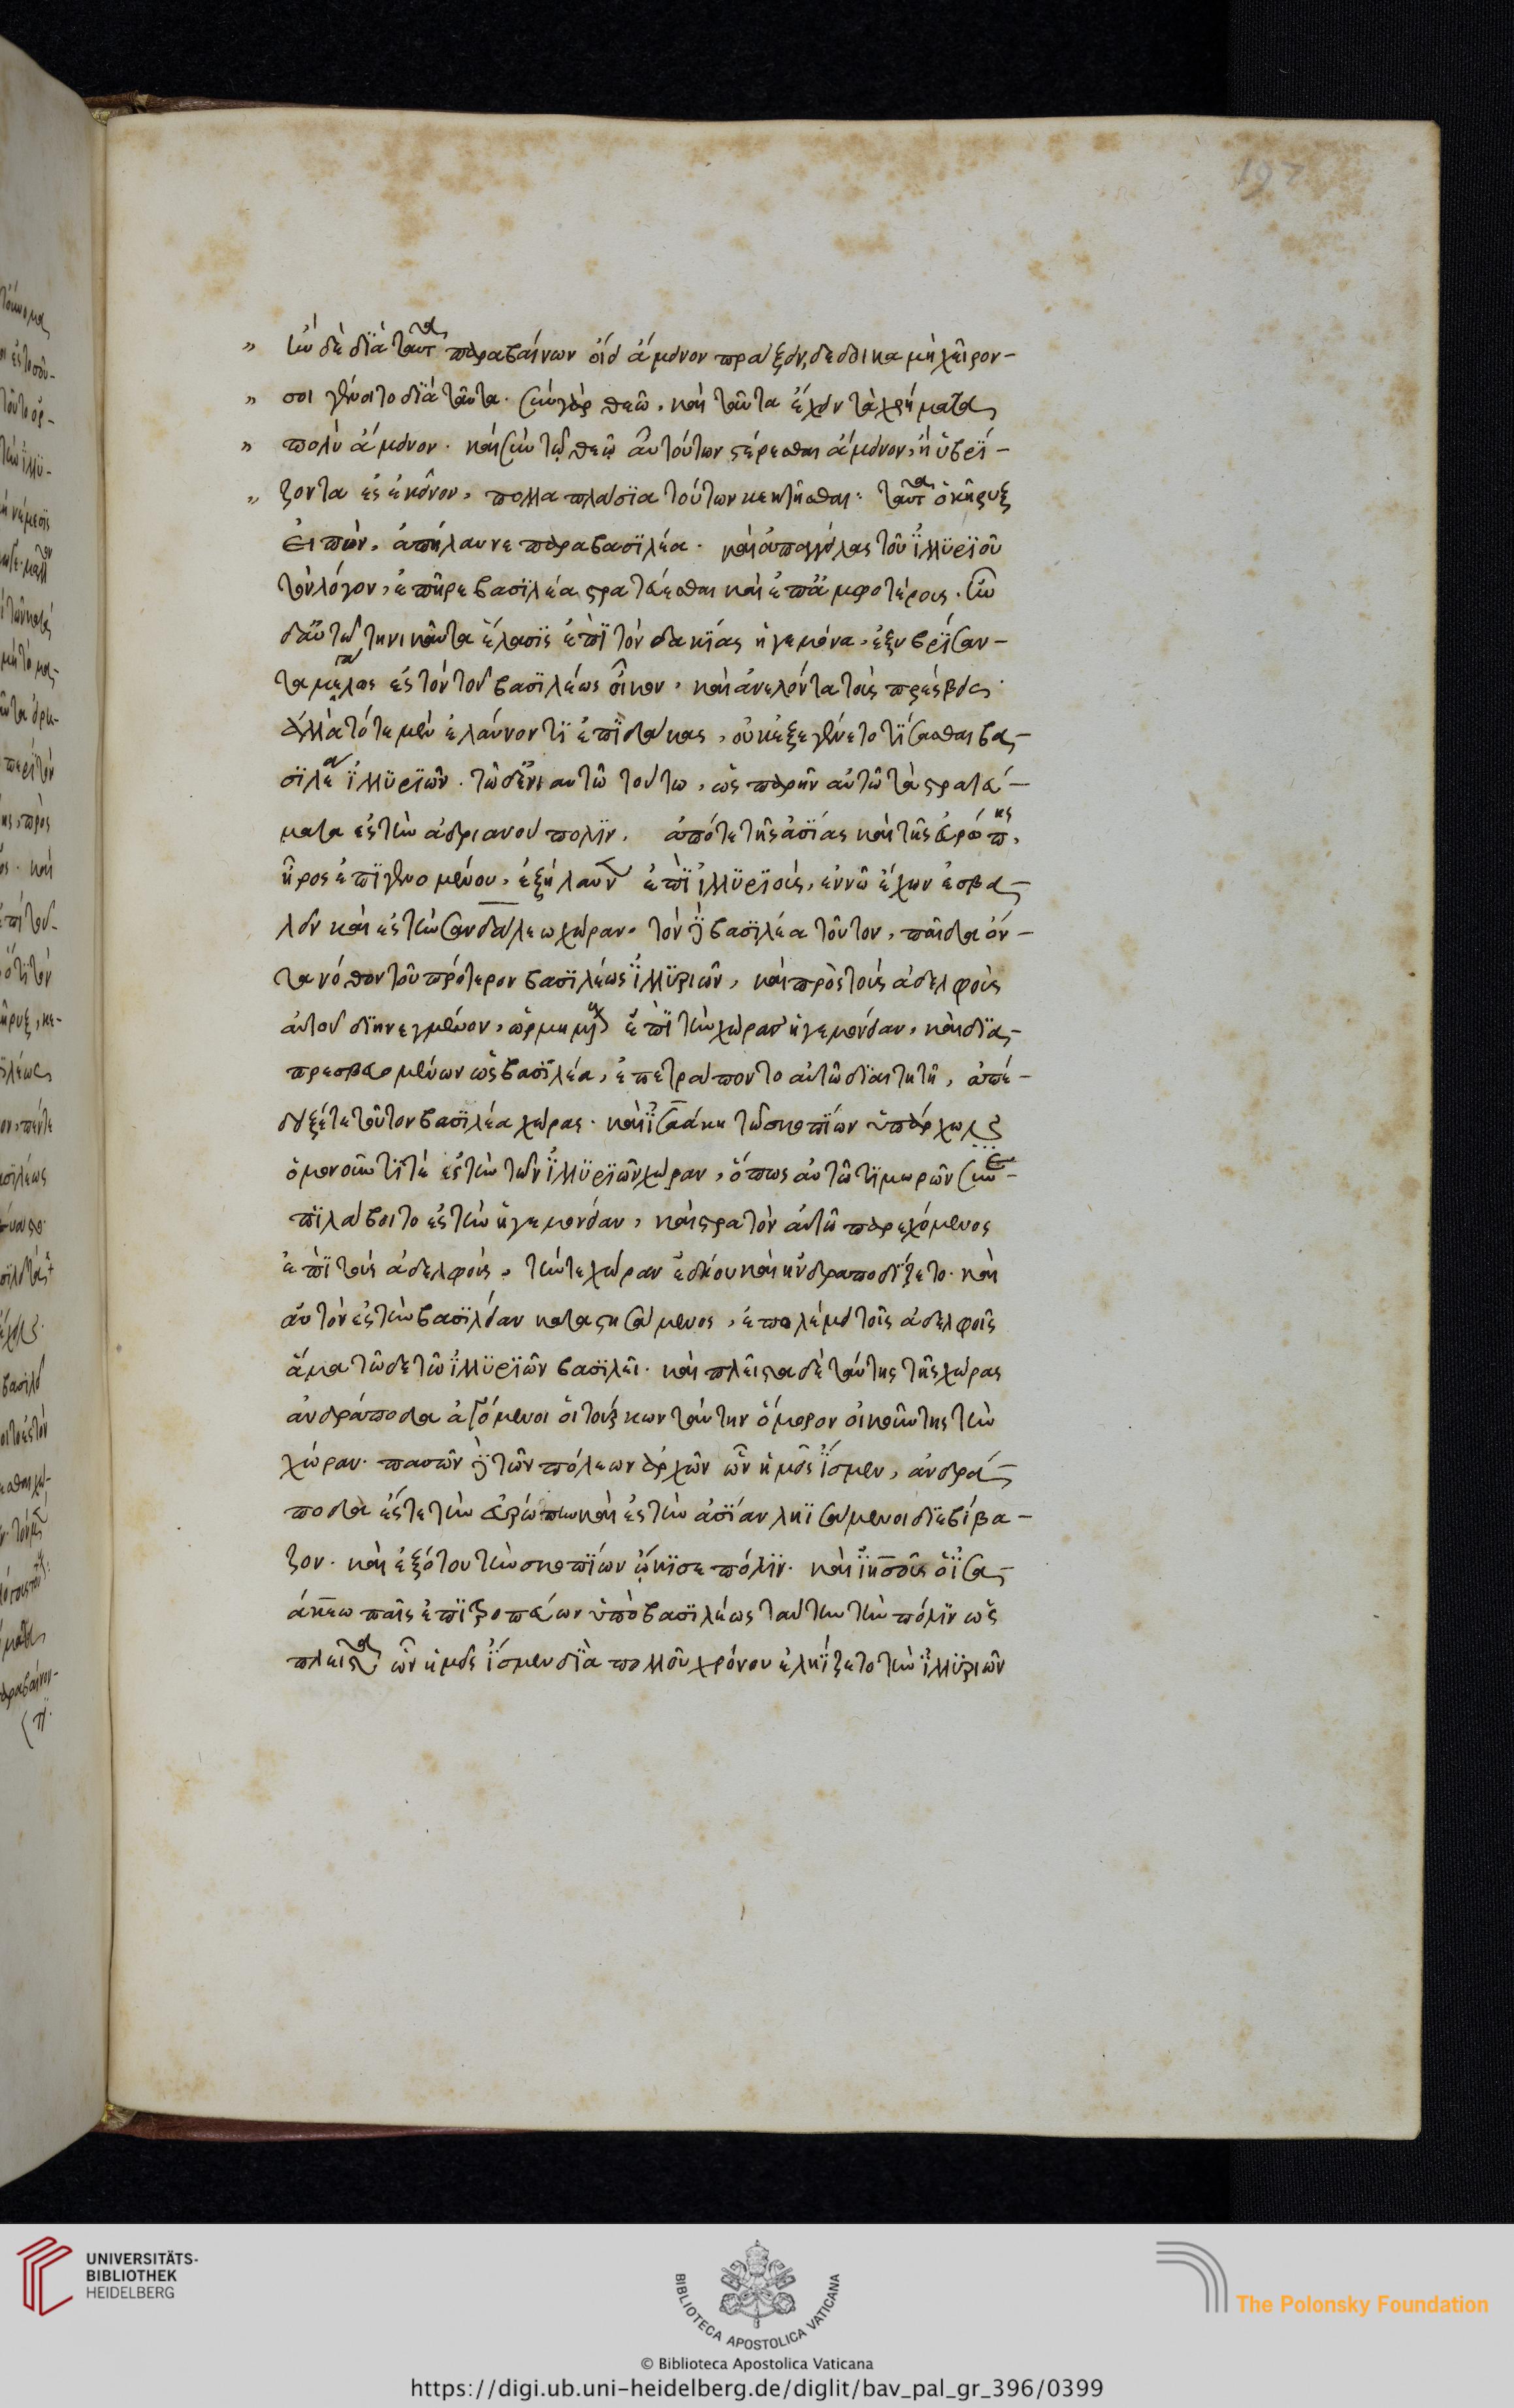 » ἢν δὲ διὰ ταῦτα παραβαίνων οἴει ἄμεινον πράξειν, δέδοικα μὴ χεῖρον-
» σοι γένοιτο διὰ ταῦτα. σὺν γὰρ θεῶ, καὶ ταῦτα ἔχειν τὰ χρήματα
» πολὺ ἄμεινον. καὶ σὺν τῷ θεῷ αὖ τούτων στέρεσθαι ἄμεινον, ἢ ὑβρί-
» ζοντα ἐς ἐκεῖνον, πολλαπλάσια τούτων κεκτῆσθαι: ταῦτα ὁ κῆρυξ
εἰπὼν, ἀπήλαυνε παρὰ βασιλέα. καὶ ἀπαγγείλας τοῦ ἰλλυριοῦ
τὸν λόγον, ἐπῆρε βασιλέα στρατεύεσθαι καὶ ἐπ' ἀμφοτέροις. ἦν
δ' αὐτῶ τηνικαῦτα ἔλασις ἐπὶ τὸν δακίας ἡγεμόνα, ἐξυβρίσαν-
τα μεγάλως ἐς τὸν τοῦ βασιλέως οἶκον, καὶ ἀνελόντα τοὺς πρέσβεις.
ἀλλὰ τότε μὲν ἐλαύνοντι ἐπὶ δάκας, οὐκ ἐξεγένετο τίσασθαι βα-
σιλέα ἰλλυριῶν. τῶ δ' ἐνιαυτῶ τούτω, ὡς παρῆν αὐτῶ τὰ στρατεύ-
ματα ἐς τὴν ἀδριανούπολιν, ἀπό τε τῆς ἀσίας καὶ τῆς εὐρώπης,
ἦρος ἐπιγενομένου, ἐξήλαυνεν ἐπὶ ἰλλυριοὺς, ἐν νῶ ἔχων ἐσβα-
λεῖν καὶ ἐς τὴν σανδάλεω χώραν. τὸν γὰρ βασιλέα τοῦτον, παῖδα ὄν-
τα νόθον τοῦ πρότερον βασιλέως ἰλλυριῶν, καὶ πρὸς τοὺς ἀδελφοὺς
αὐτοῦ διηνεγμένον, ὡρμημένους ἐπὶ τὴν χώραν ἡγεμονείαν, καὶ δια-
πρεσβευομένων ὡς βασιλέα, ἐπετράποντο αὐτῶ διαιτητῆ, ἀπέ-
δειξέ τε τοῦτον βασιλέα χώρας. καὶ ἰσαάκη τῶ σκοπίων ὑπάρχω
ὁμοροῦντί τε ἐς τὴν τῶν ἰλλυριῶν χώραν, ὅπως αὐτῶ τιμωρῶν συνε-
πιλάβοιτο ἐς τὴν ἡγεμονείαν, καὶ στρατὸν αὐτῆ παρεχόμενος
ἐπὶ τοὺς ἀδελφοὺς, τήν τε χώραν ἐδήου καὶ ἠνδραποδίζετο. καὶ
αὐτὸν ἐς τὴν βασιλείαν καταστησάμενος, ἐπολέμει τοῖς ἀδελφοῖς
ἅμα τῶδε τῶ ἰλλυριῶν βασιλεῖ. καὶ πλεῖστα δὲ ταύτης τῆς χώρας
ἀνδράποδα ἀγόμενοι οἱ τούρκων ταύτην ὅμορον οἰκοῦντες τὴν
χώραν. πασῶν γὰρ τῶν πόλεων ἀρχῶν ὧν ἡμεῖς ἴσμεν, ἀνδρά-
ποδα ἔς τε τὴν εὐρώπην καὶ ἐς τὴν ἀσίαν ληϊσάμενοι διεβίβα-
ζον. καὶ ἐξ ὅτου τὴν σκοπίων ᾤκισε πόλιν. καὶ ἰησοῦς ὁ ἰσα-
άκεω παῖς ἐπιτροπεύων ὑπὸ βασιλέως ταύτην τὴν πόλιν ὡς
πλεῖστα ὧν ἡμεῖς ἴσμεν διὰ πολλοῦ χρόνου ἐληΐζετο τὴν ἰλλυριῶν
UNIVERSITÄTS-
BIBLIOTHEK
HEIDELBERG
BIBLIOTECA APOSTOLICA VATICANA
The Polonsky Foundation
© Biblioteca Apostolica Vaticana
https://digi.ub.uni-heidelberg.de/diglit/bav_pal_gr_396/0399